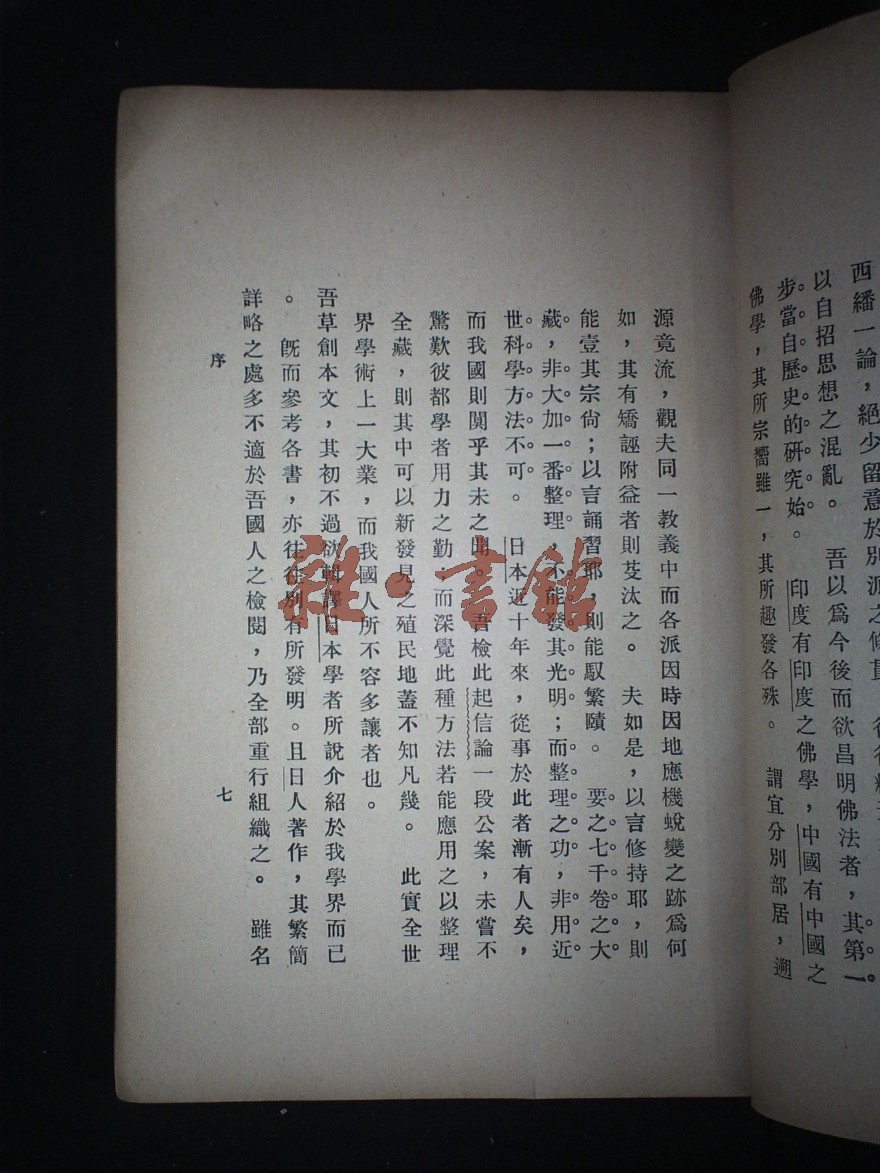 西繙一論，絕少留意於別派之條貫，往往
以自招思想之混亂。　吾以爲今後而欲昌明佛法者，其第一
步當自歷史的研究始。　印度有印度之佛學，中國有中國之
佛學，其所宗嚮雖一，其所趣發各殊。　謂宜分別部居，遡
源竟流，觀夫同一教義中而各派因時因地應機蛻變之跡爲何
如，其有矯誣附益者則芟汰之。　夫如是，以言修持耶，則
能壹其宗尙；以言誦習耶，則能馭繁賾。　要之七千卷之大
藏，非大加一番整理，不能發其光明；而整理之功，非用近
世科學方法不可。　日本近十年來，從事於此者漸有人矣，
而我國則闃乎其未之聞。　吾檢此起信論一段公案，未嘗不
驚歎彼都學者用力之勤，而深覺此種方法若能應用之以整理
全藏，則其中可以新發見之殖民地蓋不知凡幾。　此實全世
界學術上一大業，而我國人所不容多讓者也。
吾草創本文，其初不過欲輯譯日本學者所說介紹於我學界而已
。　旣而參考各書，亦往往別有所發明。且日人著作，其繁簡
詳略之處多不適於吾國人之檢閱，乃全部重行組織之。　雖名
序
七
雜·書館